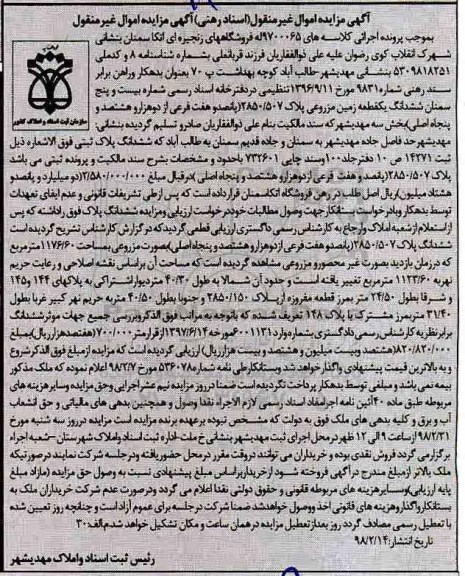 آگهی مزایده اموال غیرمنقول(اسناد رهنی)آگهی مزایده اموال غیرمنقول
بموجب پرونده اجرائی کلاسه های ۹۷۰۰۰۶۵له فروشگاههای زنجیره ای اتکا سمنان بنشانی
شهرک انقلاب کوی رضوان علیه علی ذوالفقاریان فرزند قربانعلی بشماره شناسنامه ۸ و کدملی
۵۳۰۹۸۱۸۲۵۱ بنشانی مهدیشهر طالب آباد کوچه بهداشت پ ۷۰ بعنوان بدهکار وراهن برابر
سند رهنی شماره ۹۸۳۱ مورخ ۱۳۹۶/۹/۱۱تنظیمی دردفترخانه اسناد رسمی شماره بیست و پنج
سمنان ششدانگ یکقطعه زمین مزروعی پلاک ۲۸۵۰/۵۰۷(پانصدو هفت فرعی از دوهزارو هشتصد و
پنجاه اصلی)بخش سه مهدیشهر که سند مالکیت بنام علی ذوالفقاریان صادرو تسلیم گردیده بنشانی:
مهدیشهر حد فاصل جاده مهدیشهر به سمنان و جاده قدیم سمنان به طالب آباد که ششدانگ پلاک ثبتی فوق الاشاره ذیل
ثبت ۱۴۲۷۱ ص ۱۰ دفترجلد ۱۰۰وسند چاپی ۷۳۲۶۰۱ باحدود و مشخصات بشرح سند مالکیت و پرونده ثبتی می باشد
پلاک ۲۸۵۰/۵۰۷(پانصد وهفت فرعی ازدوهزارو هشتصد و پنجاه اصلی)درقبال مبلغ ۲/۵۸۰/۰۰۰/۰۰۰(دو میلیارد و پانصدو
هشتاد میلیون)ریال اصل طلب در رهن فروشگاه اتکاسمنان قرارداده است که پس ازطی تشریفات قانونی و عدم ایفای تعهدات
توسط بدهکار وبنا درخواست بستانکارجهت وصول مطالبات خوددرخواست ارزیابی ومزایده ششدانگ پلاک فوق راداشته که پس
ازاستعلام ازشعبه املاک وارجاع به کارشناس رسمی دادگستری ارزیابی قطعی گردیدکه درگزارش کارشناس تشریح گردیده است
ششدانگ پلاک ۲۸۵۰/۵۰۷(پانصدو هفت فرعی ازدوهزارو هشتصد و پنجاه اصلی)بصورت مزروعی بمساحت ۱۱۷۶/۶۰مترمربع
که درزمان بازدید بصورت غیر محصورو مزروعی مشاهده گردیده است که مساحت آن براساس نقشه اصلاحی و رعایت حریم
نهربه ۱۱۲۳/۶۰ مترمربع تغییر یافته است و حدود آن شمالا به طول ۴۰/۳۰ متردیواراشتراکی به پلاکهای ۱۴۴ و۱۴۵
و شرقا بطول ۲۴/۵۰ متر بمرز قطعه مفروزه ازپلاک ۲۸۵۰/۱۵۰ و جنوبا بطول ۴۰/۵۰ متربه حریم نهر کبیر غربا بطول
۳۱/۴۰ متربمرز مشترک با پلاک ۱۴۸ تعریف شده که باتوجه به مراتب فوق الذکروبررسی جمیع جهات موثرششدانگ
برابر نظریه کارشناس رسمی دادگستری بشماره وارد ۶۰۰۱۱۳۱مورخه ۱۳۹۷/۶/۱۴ازقرارمتر ۷۰۰/۰۰۰(هفتصدهزارریال)بمبلغ
۸۲۰/۸۲۰/۰۰۰(هشتصد وبیست میلیون و هشتصد و بیست هزارریال) ارزیابی گردیده است که مزایده ازمبلغ فوق الذکر شروع
و به بالاترین قیمت پیشنهادی واگذار خواهد شدوبستانکارطی نامه شماره ۵۳۶۰۷۸ مورخ ۹۸/۲/۷ اعلام نموده که ملک مذکور
بیمه نمی باشد و مبلغی توسط بدهکار پرداخت نگردیده است ضمنا درروز مزایده نیم عشراجرایی وحق مزایده وسایرهزینه های
مربوطه طبق ماده ۴۰آئین نامه اجرامفاد اسناد رسمی لازم الاجراء نقدا وصول و همچنین بدهی های مالیاتی و حق انشعاب
آب و برق و کلیه بدهی های ملک فوق به دولت که مشخص نبوده برعهده برنده مزایده است مزایده درروز سه شنبه مورخ
۹۸/۲/۳۱ ازساعت ۹ الی ۱۲ ظهر در محل اجرای ثبت مهدیشهر بنشانی خ ملت-اداره ثبت اسناد واملاک شهرستان -شعبه اجراء
برگزارمی گردد فروش نقدی بوده و خریداران می توانند دروقت مقرر درمحل حضوریافته ودرجلسه شرکت نمایند درصورتیکه
ملک بالاتر ازمبلغ مندرج درآگهی فروخته شود ازخریداربراساس مبلغ پیشنهادی نسبت به وصول حق مزایده (مازاد مبلغ
پایه ارزیابی)وسایرهزینه های مربوطه قانونی و حقوق دولتی نقدا اعلام می گردد ودرصورت عدم شرکت خریداران ملک به
بستانکار واگذار وهزینه های قانونی اخذ ووصول خواهدشد ضمنا شرکت درجلسه برای عموم آزاد است و چنانچه روز تعیین شده
با تعطیل رسمی مصادف گردد روز بعدازتعطیل مزایده درهمان ساعت و مکان تشکیل خواهد شدم الف ۳۰
تاریخ انتشار: ۹۸/۲/۱۴
رئیس ثبت اسناد واملاک مهدیشهر
سازمان ثبت اسناد و املاک کشور